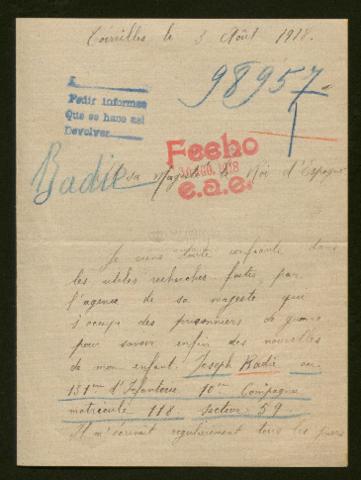 le 3 Août 1918.
98957
Pedir informes
Que se hace así
Devolver
Fecho
AGO. 1918
e.a.e.
Badie
A sa Majesté le Roi d'Espagne
Je viens toute confiante dans
les utiles recherches faites par
l'agence de sa majesté qui
s'occupe des prisonniers de guerre
pour savoir enfin des nouvelles
de mon enfant. Joseph Badie au
131me d'Infanterie 10me Compagnie
matricule 118 secteur 59
Il m'écrivait regulièrement tous les jours